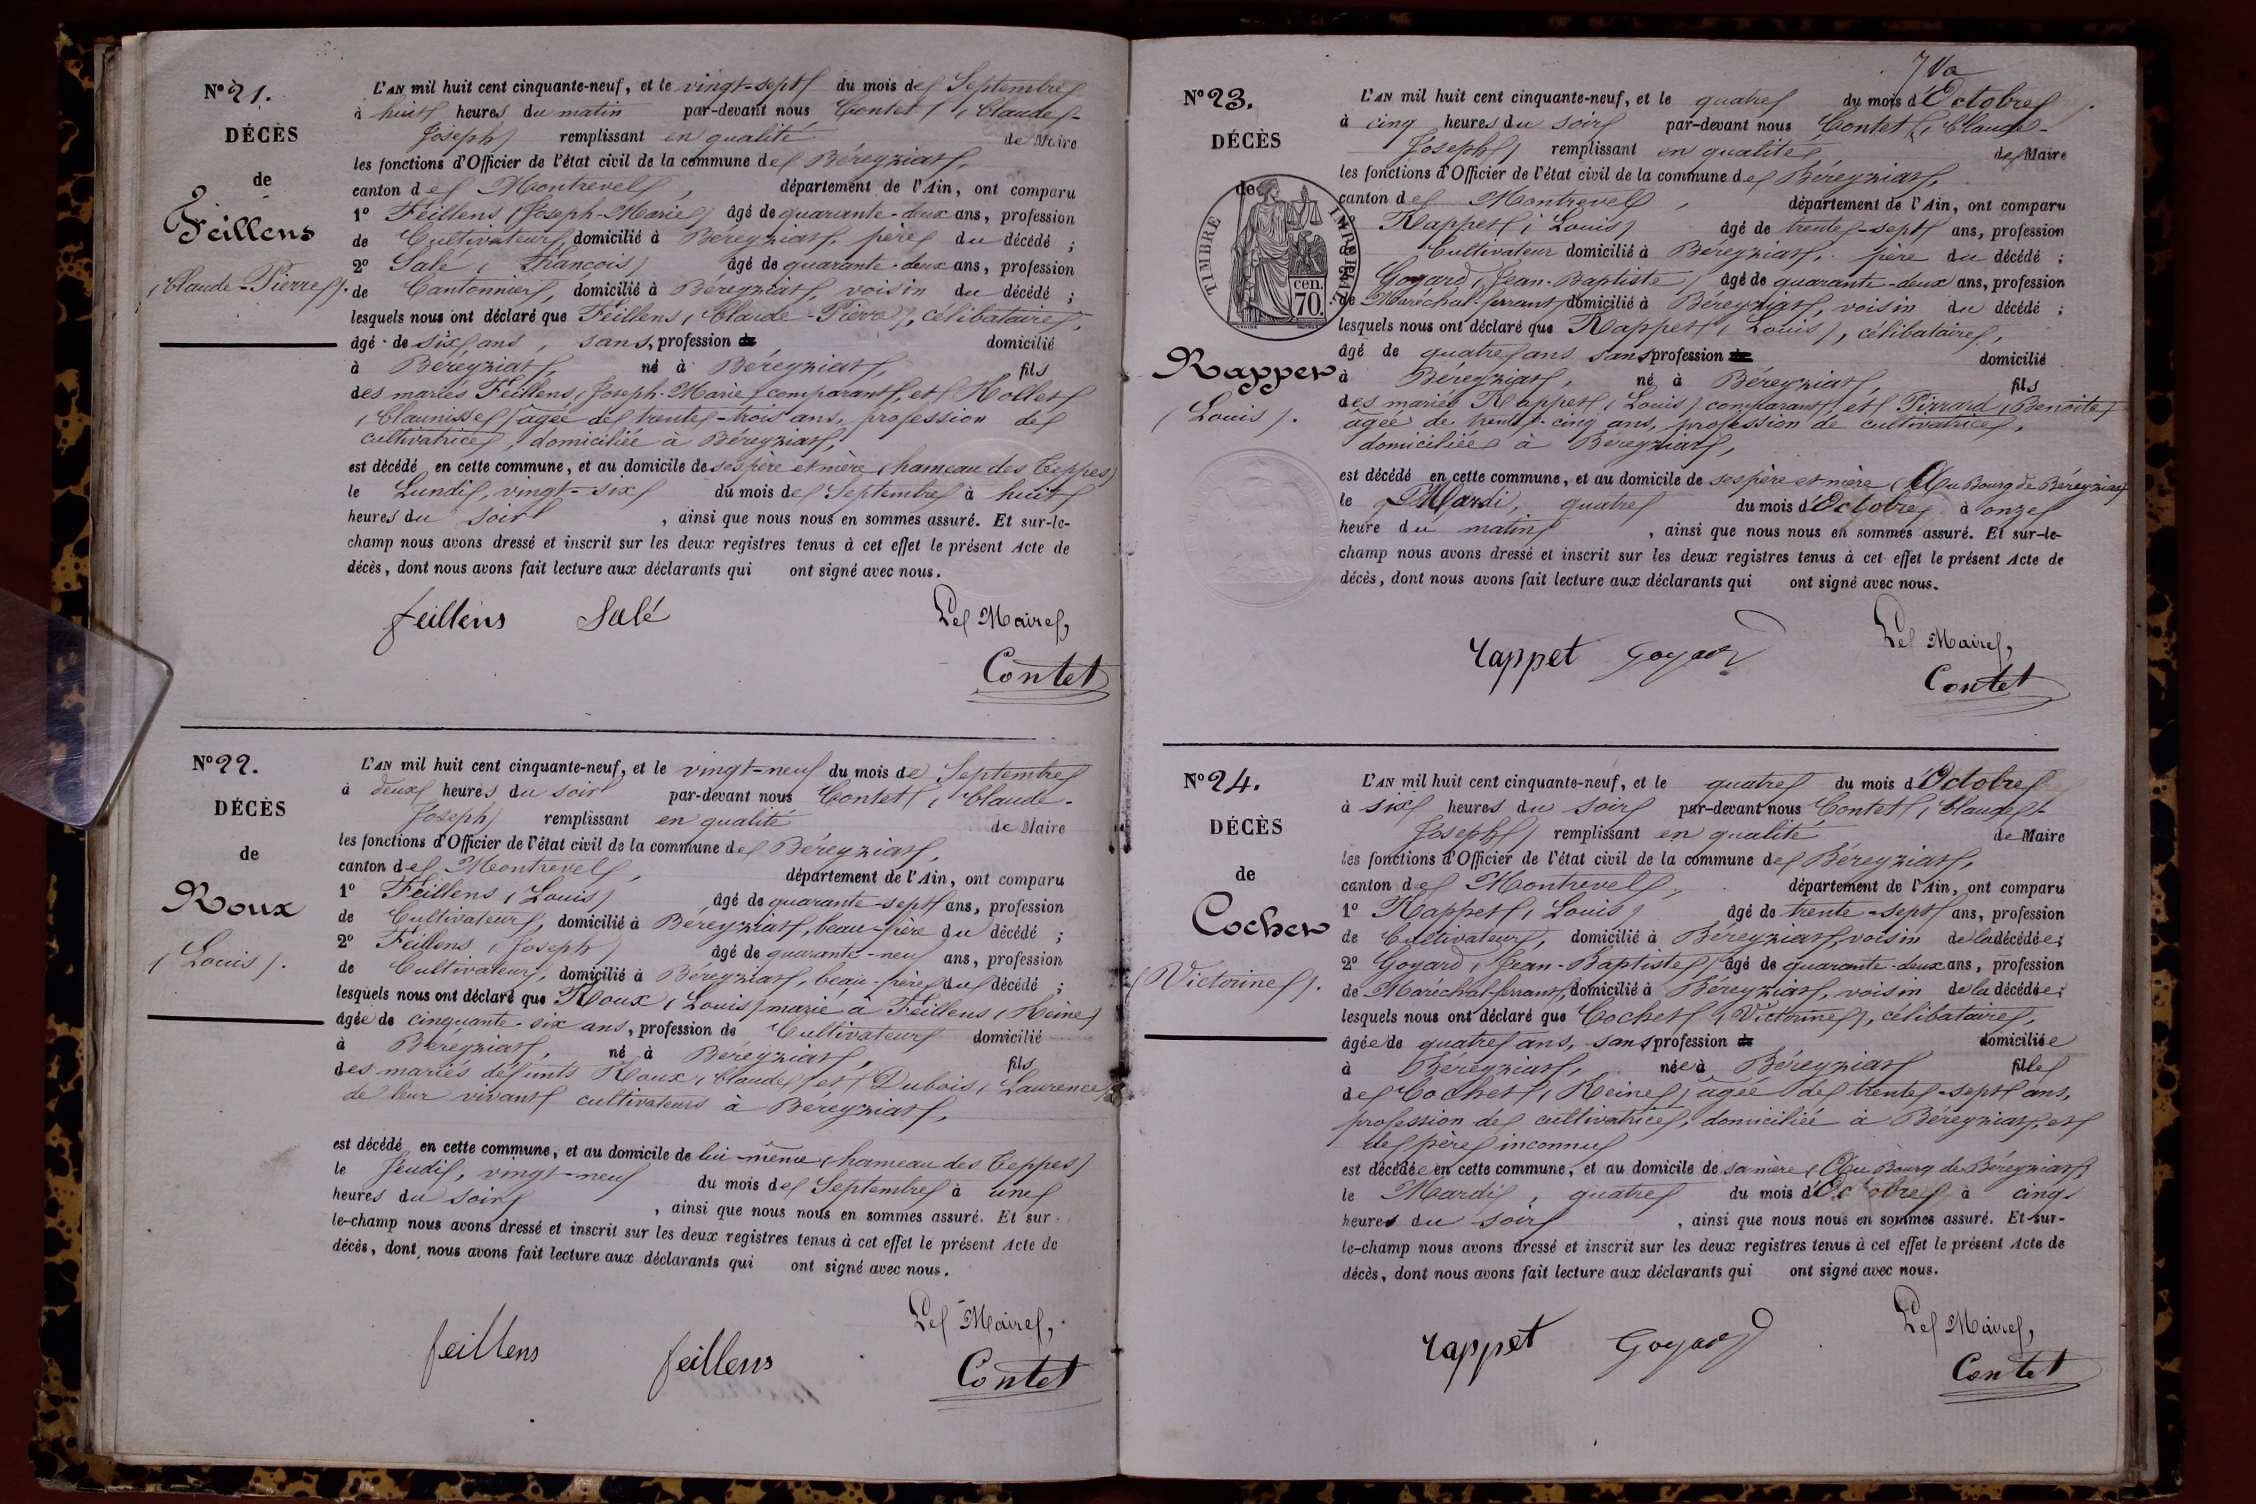 N° 21.
DÉCÈS
de
Feillens
(Claude-Pierre).
L'AN mil huit cent cinquante-neuf, et le vingt-sept du mois de Septembre
à huit heures du matin par-devant nous Contet (Claude-
Joseph) remplissant en qualité de Maire
les fonctions d'Officier de l'état civil de la commune de Béreyziat,
canton de Montrevel, département de l'Ain, ont comparu
1° Feillens (Joseph-Marie) âgé de quarante-deux ans, profession
de Cultivateur, domicilié à Béreyziat, père du décédé ;
2° Salé (François) âgé de quarante-deux ans, profession
de Cantonnier, domicilié à Béreyziat, voisin du décédé ;
lesquels nous ont déclaré que Feillens (Claude-Pierre), célibataire,
âgé de six ans, sans profession de domicilié
à Béreyziat, né à Béreyziat, fils
des mariés Feillens (Joseph-Marie) comparant, et Hollet
(Claunisse) âgée de trente-trois ans, profession de
cultivatrice, domiciliée à Béreyziat,
est décédé en cette commune, et au domicile de ses père et mère (hameau des Teppes)
le Lundi, vingt-six du mois de Septembre à huit
heures du soir, ainsi que nous nous en sommes assuré. Et sur-le-
champ nous avons dressé et inscrit sur les deux registres tenus à cet effet le présent Acte de
décès, dont nous avons fait lecture aux déclarants qui ont signé avec nous.
feillens Salé Le Maire,
Contet
N° 22.
DÉCÈS
de
Roux
(Louis).
L'AN mil huit cent cinquante-neuf, et le vingt-neuf du mois de Septembre
à deux heures du soir par-devant nous Contet (Claude-
Joseph) remplissant en qualité de Maire
les fonctions d'Officier de l'état civil de la commune de Béreyziat,
canton de Montrevel, département de l'Ain, ont comparu
1° Feillens (Louis) âgé de quarante-sept ans, profession
de Cultivateur, domicilié à Béreyziat, beau-frère du décédé ;
2° Feillens (Joseph) âgé de quarante-neuf ans, profession
de Cultivateur, domicilié à Béreyziat, beau-frère du décédé ;
lesquels nous ont déclaré que Roux (Louis) marié à Feillens (Reine)
âgée de cinquante-six ans, profession de Cultivateur domicilié
à Béreyziat, né à Béreyziat, fils
des mariés défunts Roux (Claude) et Dubois (Laurence)
de leur vivant cultivateurs à Béreyziat,
est décédé en cette commune, et au domicile de lui-même (hameau des Teppes)
le Jeudi, vingt-neuf du mois de Septembre à une
heures du soir, ainsi que nous nous en sommes assuré. Et sur-
le-champ nous avons dressé et inscrit sur les deux registres tenus à cet effet le présent Acte de
décès, dont nous avons fait lecture aux déclarants qui ont signé avec nous.
feillens feillens Le Maire,
Contet
N° 23.
DÉCÈS
de
TIMBRE IMPERIAL
70. cen.
Rappet
(Louis).
L'AN mil huit cent cinquante-neuf, et le quatre du mois d'Octobre
à cinq heures du soir par-devant nous Contet (Claude-
Joseph) remplissant en qualité de Maire
les fonctions d'Officier de l'état civil de la commune de Béreyziat,
canton de Montrevel, département de l'Ain, ont comparu
Rappet (Louis) âgé de trente-sept ans, profession
Cultivateur domicilié à Béreyziat, père du décédé ;
Goyard (Jean-Baptiste) âgé de quarante-deux ans, profession
de Maréchal-ferrant, domicilié à Béreyziat, voisin du décédé ;
lesquels nous ont déclaré que Rappet (Louis), célibataire,
âgé de quatre ans sans profession de domicilié
à Béreyziat, né à Béreyziat, fils
des mariés Rappet (Louis) comparant, et Pirrard (Benoite)
âgée de trente-cinq ans, profession de cultivatrice,
domiciliée à Béreyziat,
est décédé en cette commune, et au domicile de ses père et mère (Au Bourg de Béreyziat)
le Mardi, quatre du mois d'Octobre à onze
heure du matin, ainsi que nous nous en sommes assuré. Et sur-le-
champ nous avons dressé et inscrit sur les deux registres tenus à cet effet le présent Acte de
décès, dont nous avons fait lecture aux déclarants qui ont signé avec nous.
rappet Goyard Le Maire,
Contet
N° 24.
DÉCÈS
de
Cochet
(Victorine).
L'AN mil huit cent cinquante-neuf, et le quatre du mois d'Octobre
à six heures du soir par-devant nous Contet (Claude-
Joseph) remplissant en qualité de Maire
les fonctions d'Officier de l'état civil de la commune de Béreyziat,
canton de Montrevel, département de l'Ain, ont comparu
1° Rappet (Louis) âgé de trente-sept ans, profession
de Cultivateur, domicilié à Béreyziat, voisin de la décédée ;
2° Goyard (Jean-Baptiste) âgé de quarante-deux ans, profession
de Maréchal-ferrant, domicilié à Béreyziat, voisin de la décédée ;
lesquels nous ont déclaré que Cochet (Victorine), célibataire,
âgée de quatre ans, sans profession de domiciliée
à Béreyziat, née à Béreyziat fille
de Cochet (Reine) âgée de trente-sept ans,
profession de cultivatrice, domiciliée à Béreyziat, et
de père inconnu
est décédée en cette commune, et au domicile de sa mère (Au Bourg de Béreyziat)
le Mardi, quatre du mois d'Octobre à cinq
heures du soir, ainsi que nous nous en sommes assuré. Et sur-
le-champ nous avons dressé et inscrit sur les deux registres tenus à cet effet le présent Acte de
décès, dont nous avons fait lecture aux déclarants qui ont signé avec nous.
rappet Goyard Le Maire,
Contet